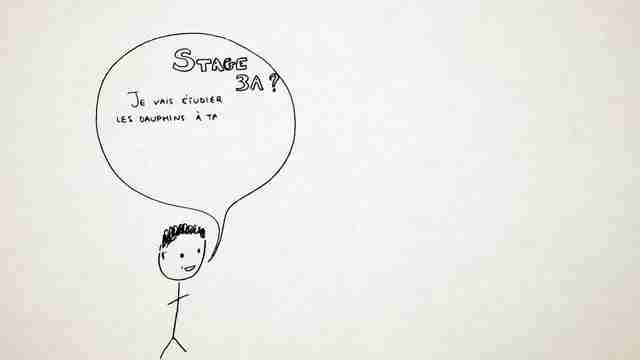 STAGE
3A ?
JE VAIS ÉTUDIER
LES DAUPHINS À TA